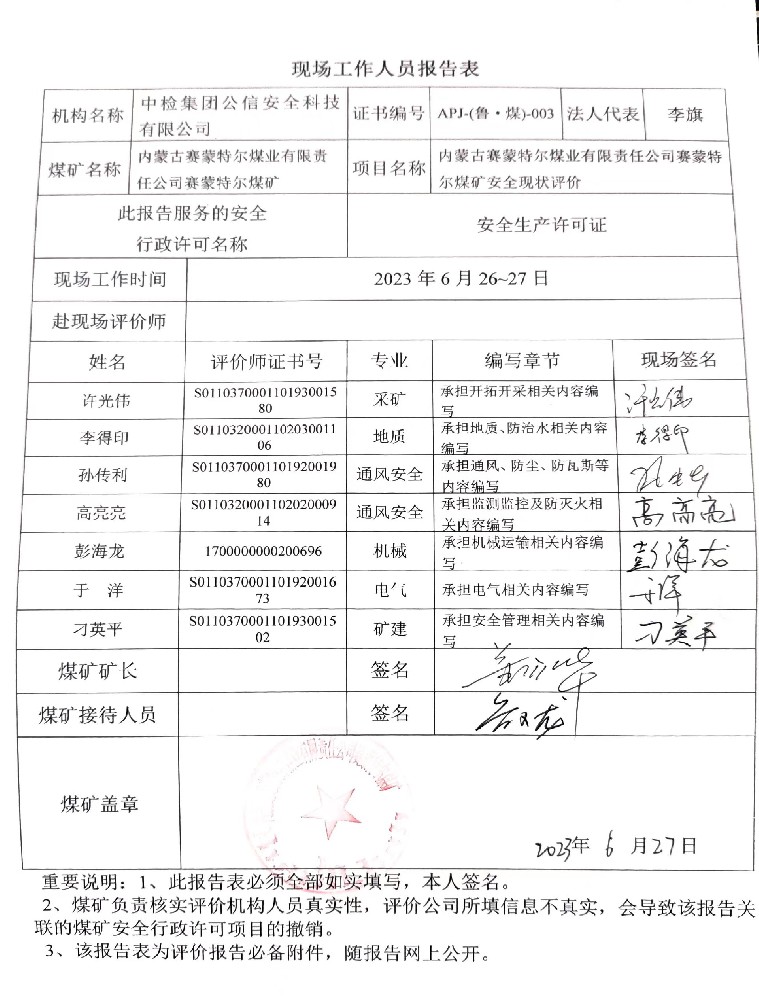 现场工作人员报告表
机构名称
中检集团公信安全科技
有限公司
证书编号
APJ-(鲁·煤)-003
法人代表
李旗
煤矿名称
内蒙古赛蒙特尔煤业有限责
任公司赛蒙特尔煤矿
项目名称
内蒙古赛蒙特尔煤业有限责任公司赛蒙特
尔煤矿安全现状评价
此报告服务的安全
行政许可名称
安全生产许可证
现场工作时间
2023 年 6 月 26~27 日
赴现场评价师
姓名
评价师证书号
专业
编写章节
现场签名
许光伟
S0110370001101930015
80
采矿
承担开拓开采相关内容编
写
许光伟
李得印
S0110320001102030011
06
地质
承担地质、防治水相关内容
编写
李得印
孙传利
S0110370001101920019
80
通风安全
承担通风、防尘、防瓦斯等
内容编写
高亮亮
S0110320001102020009
14
通风安全
承担监测监控及防灭火相
关内容编写
高亮亮
彭海龙
1700000000200696
机械
承担机械运输相关内容编
写
彭海龙
于 洋
S0110370001101920016
73
电气
承担电气相关内容编写
于洋
刁英平
S0110370001101930015
02
矿建
承担安全管理相关内容编
写
刁英平
煤矿矿长
签名
煤矿接待人员
签名
煤矿盖章
2023年 6 月27日
重要说明：1、此报告表必须全部如实填写，本人签名。
2、煤矿负责核实评价机构人员真实性，评价公司所填信息不真实，会导致该报告关
联的煤矿安全行政许可项目的撤销。
3、该报告表为评价报告必备附件，随报告网上公开。